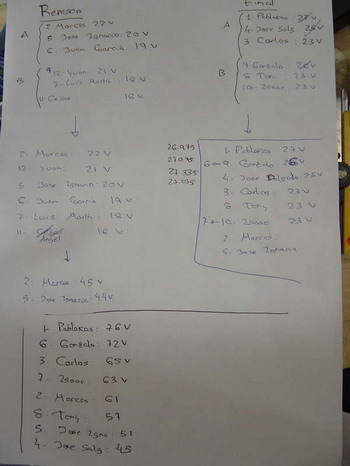 Repesca
A
2. Marcos: 22 V
5 Jose Ignacio: 20 V
6. Juan García: 19 V
B
12. Juan: 21 V
7- Luis Martín: 18 V
11. Cesar 16 V
2- Marcos: 22 V
12- Juan: 21 V
5 Jose Ignacio: 20 V
6 Juan García 19 V
7- Luis Martín: 18 V
11- Angel 16 V
2- Marcos 45 V
5- Jose Ignacio: 44 V
Final
A
1. Pabloras: 27 V
4. Jose Salg 25 V
3 Carlos: 23 V
B
9- Gonzalo 26 V
8 Tony: 23 V
10- Isaac: 23 V
26.975
27.095
27.335
27.075
1. Pabloras 27 V
6 ← 9. Gonzalo 26 V
4 Jose 25 V
3 Carlos: 23 V
8 Tony: 23 V
7 ← 10. Isaac: 23 V
2- Marcos
5 Jose Ignacio
1- Pabloras: 76 V
6 Gonzalo: 72 V
3 Carlos 65 V
7 Isaac 63 V
2- Marcos 61
8- Tony: 57
5 Jose Igna: 51
4- Jose Salg: 45